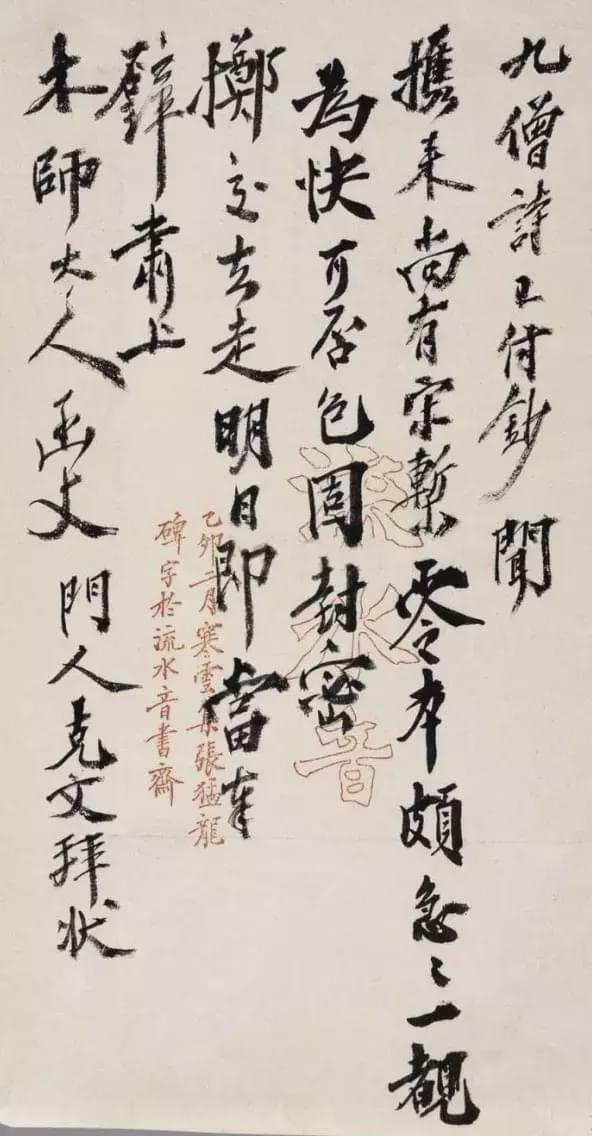 九僧詩已付鈔聞
攜來尚有宋槧零本頗急々一覩
為快可否包固封密
擲交去走明日即當奉
繂肅上
木師大人函丈門人克文拜狀
流水音
乙卯二月寒雲集張猛龍
碑字於流水音書齋